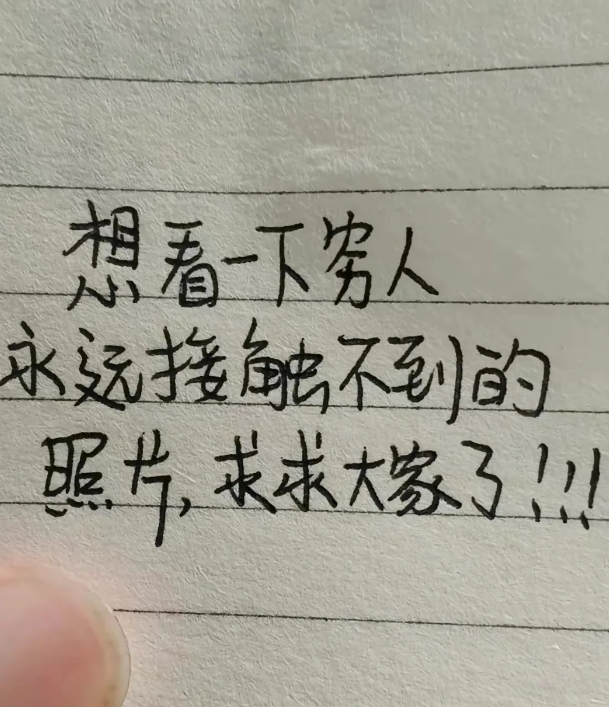 想看一下穷人
永远接触不到的
照片，求求大家了!!!